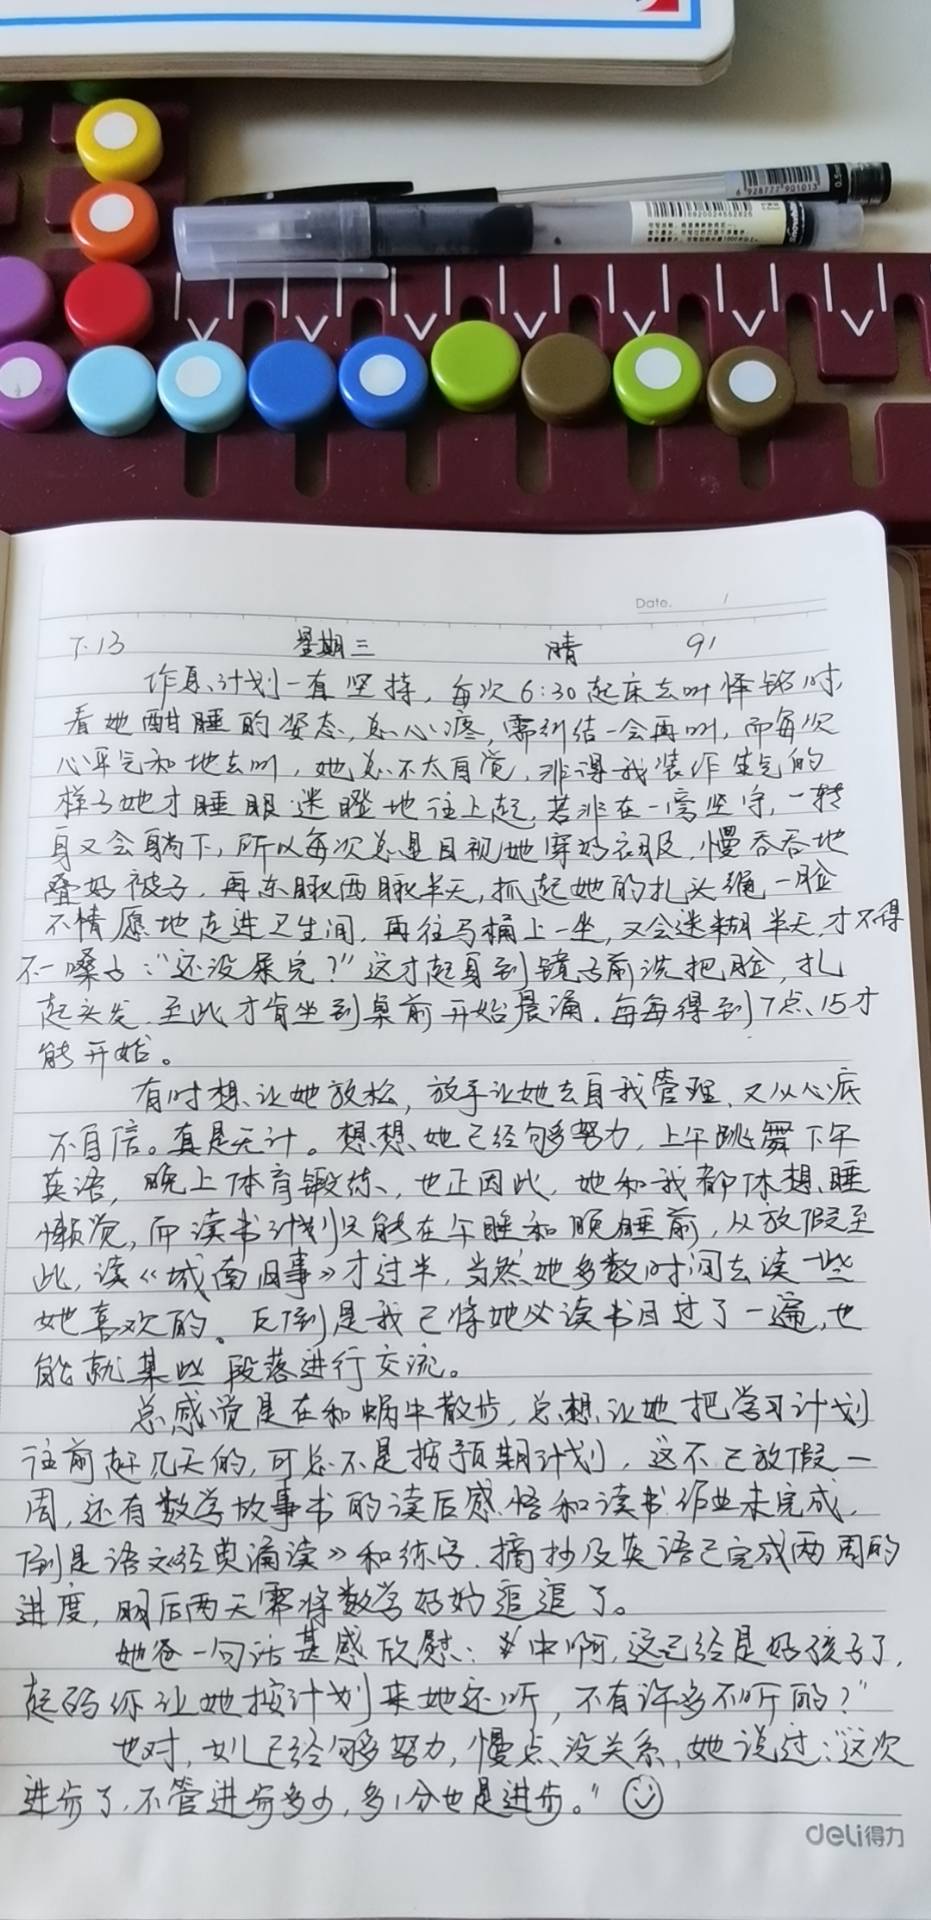 6 928777 901013
0.5
6920024552825
Date. /
7.13 星期三 晴 91
作息计划一直坚持，每次6:30起床去叫怿铭时，
看她酣睡的姿态，总心疼，需纠结一会再叫，而每次
心平气和地去叫，她总不太自觉，非得我装作生气的
样子她才睡眼迷瞪地往上起，若非在一旁坚守，一转
身又会躺下，所以每次总是目视她穿好衣服，慢吞吞地
叠好被子，再东瞅西瞅半天，抓起她的扎头绳一脸
不情愿地走进卫生间，再往马桶上一坐，又会迷糊半天，才不得
不一嗓子：“还没尿完？”这才起身到镜子前洗把脸，扎
起头发，至此才肯坐到桌前开始晨诵，每每得到7点15才
能开始。
有时想让她放松，放手让她去自我管理，又从心底
不自信。真是无计。想想她已经够努力，上午跳舞下午
英语，晚上体育锻练，也正因此，她和我都休想睡
懒觉，而读书计划只能在午睡和晚睡前，从放假至
此，读《城南旧事》才过半，当然她多数时间去读一些
她喜欢的。反倒是我已将她必读书目过了一遍，也
能就某些段落进行交流。
总感觉是在和蜗牛散步，总想让她把学习计划
往前赶几天的，可总不是按预期计划，这不已放假一
周，还有数学故事书的读后感悟和读书作业未完成，
倒是语文《经典诵读》和练字、摘抄及英语已完成两周的
进度，明后两天需将数学好好追追了。
她爸一句话甚感欣慰：“中啊，这已经是好孩子了，
起码你让她按计划来她还听，不有许多不听的？”
也对，女儿已经够努力，慢点没关系，她说过：“这次
进步了，不管进步多少，多1分也是进步。”
deli得力